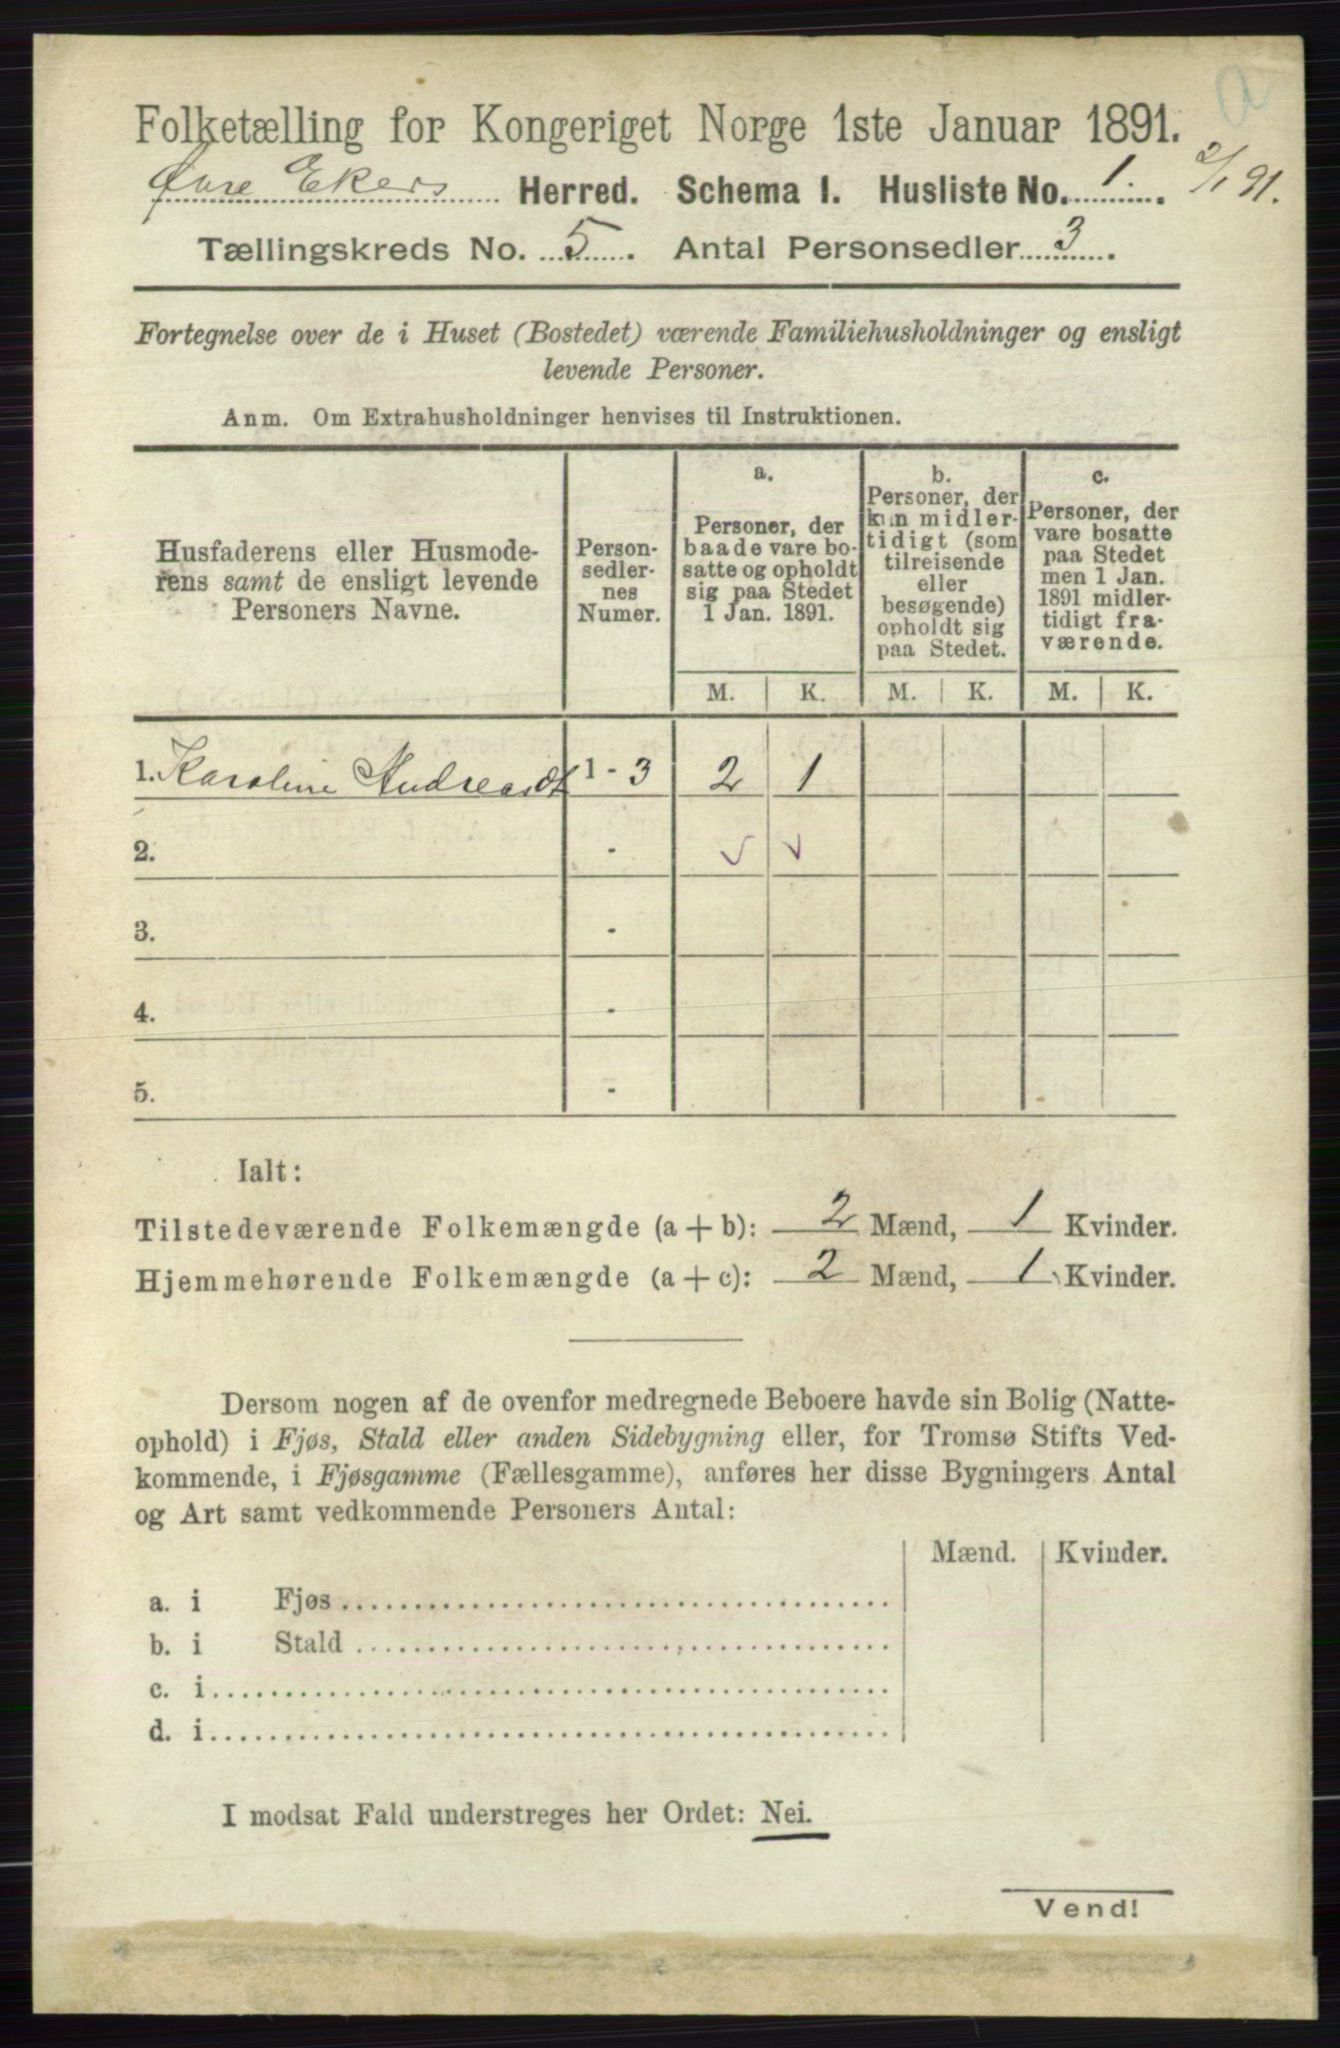 a
Folketælling for Kongeriget Norge 1ste Januar 1891.
Øvre Ekers Herred. Schema I. Husliste No. 1. 2/1 91.
Tællingskreds No. 5. Antal Personsedler 3.
Fortegnelse over de i Huset (Bostedet) værende Familiehusholdninger og ensligt
levende Personer.
Anm. Om Extrahusholdninger henvises til Instruktionen.
Husfaderens eller Husmode-
rens samt de ensligt levende
Personers Navne.
Person-
sedler-
nes
Numer.
a.
Personer, der
baade vare bo-
satte og opholdt
sig paa Stedet
1 Jan. 1891.
b.
Personer, der
kun midler-
tidigt (som
tilreisende
eller
besøgende)
opholdt sig
paa Stedet.
c.
Personer, der
vare bosatte
paa Stedet
men 1 Jan.
1891 midler-
tidigt fra-
værende.
M. K. M. K. M. K.
1. Karoline Andreasdt 1 - 3 2 1
2. -
3. -
4. -
5. -
Ialt:
Tilstedeværende Folkemængde (a + b): 2 Mænd, 1 Kvinder.
Hjemmehørende Folkemængde (a + c): 2 Mænd, 1 Kvinder.
Dersom nogen af de ovenfor medregnede Beboere havde sin Bolig (Natte-
ophold) i Fjøs, Stald eller anden Sidebygning eller, for Tromsø Stifts Ved-
kommende, i Fjøsgamme (Fællesgamme), anføres her disse Bygningers Antal
og Art samt vedkommende Personers Antal:
Mænd. Kvinder.
a. i Fjøs
b. i Stald
c. i
d. i
I modsat Fald understreges her Ordet: Nei.
Vend!